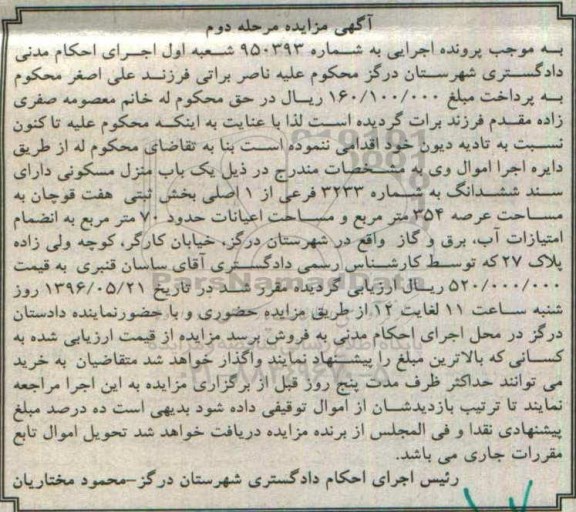 آگهی مزایده مرحله دوم
به موجب پرونده اجرایی به شماره ۹۵۰۳۹۳ شعبه اول اجرای احکام مدنی
دادگستری شهرستان درگز محکوم علیه ناصر براتی فرزند علی اصغر محکوم
به پرداخت مبلغ ۱۶۰/۱۰۰/۰۰۰ ریال در حق محکوم له خانم معصومه صفری
زاده مقدم فرزند برات گردیده است لذا با عنایت به اینکه محکوم علیه تاکنون
نسبت به تادیه دیون خود اقدامی ننموده است بنا به تقاضای محکوم له از طریق
دایره اجرا اموال وی به مشخصات مندرج در ذیل یک باب منزل مسکونی دارای
سند ششدانگ به شماره ۳۲۳۳ فرعی از ۱ اصلی بخش ثبتی هفت قوچان به
مساحت عرصه ۳۵۴ متر مربع و مساحت اعیانات حدود ۷۰ متر مربع به انضمام
امتیازات آب، برق و گاز واقع در شهرستان درگز، خیابان کارگر، کوچه ولی زاده
پلاک ۲۷ که توسط کارشناس رسمی دادگستری آقای ساسان قنبری به قیمت
۵۲۰/۰۰۰/۰۰۰ ریال ارزیابی گردیده مقرر شد در تاریخ ۱۳۹۶/۰۵/۲۱ روز
شنبه ساعت ۱۱ لغایت ۱۲ از طریق مزایده حضوری و با حضورنماینده دادستان
درگز در محل اجرای احکام مدنی به فروش برسد مزایده از قیمت ارزیابی شده به
کسانی که بالاترین مبلغ را پیشنهاد نمایند واگذار خواهد شد متقاضیان به خرید
می توانند حداکثر ظرف مدت پنج روز قبل از برگزاری مزایده به این اجرا مراجعه
نمایند تا ترتیب بازدیدشان از اموال توقیفی داده شود بدیهی است ده درصد مبلغ
پیشنهادی نقدا و فی المجلس از برنده مزایده دریافت خواهد شد تحویل اموال تابع
مقررات جاری می باشد.
رئیس اجرای احکام دادگستری شهرستان درگز-محمود مختاریان